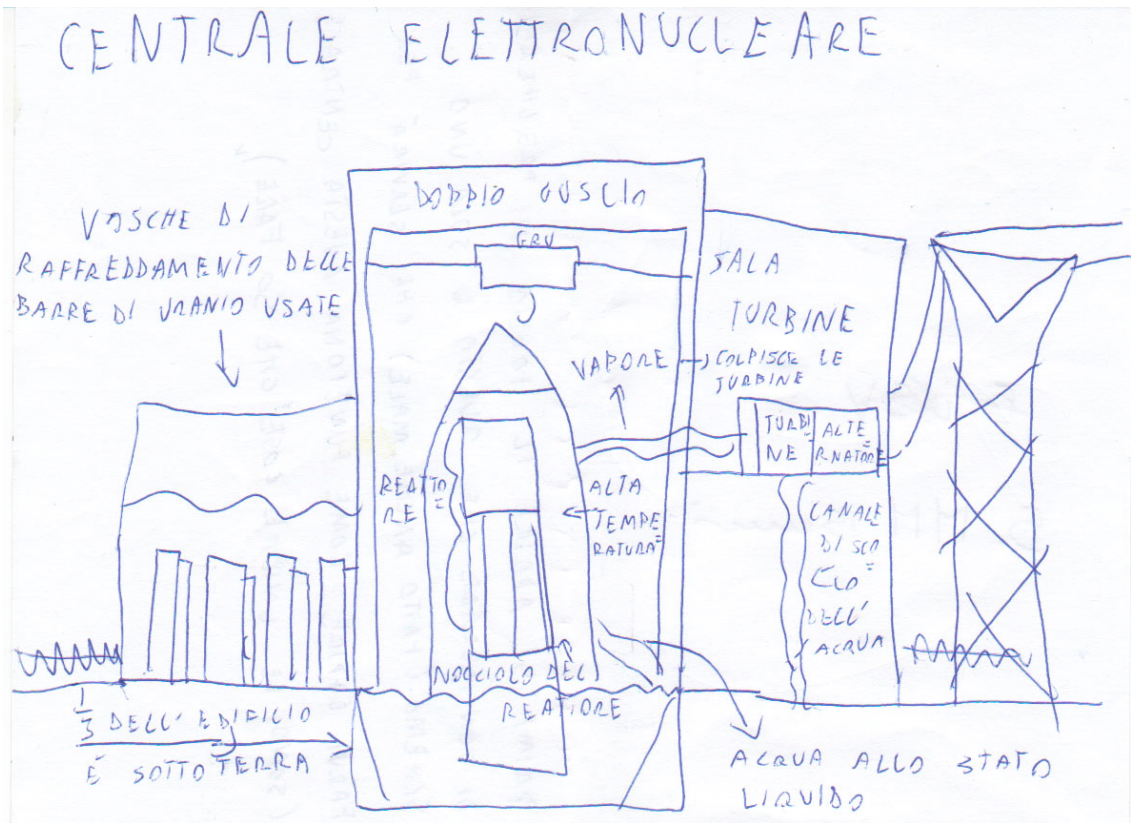 CENTRALE ELETTRONUCLEARE
DOPPIO GUSCIO
GRU
VASCHE DI
RAFFREDDAMENTO DELLE
BARRE DI URANIO USATE
SALA
TURBINE
VAPORE
COLPISCE LE
TURBINE
TURBI=
NE
ALTE=
RNATORE
REATTO=
RE
ALTA
TEMPE=
RATURA
CANALE
DI SCO=
LO
DELL'
ACQUA
NOCCIOLO DEL
REATTORE
1/3 DELL'EDIFICIO
È SOTTO TERRA
ACQUA ALLO STATO
LIQUIDO